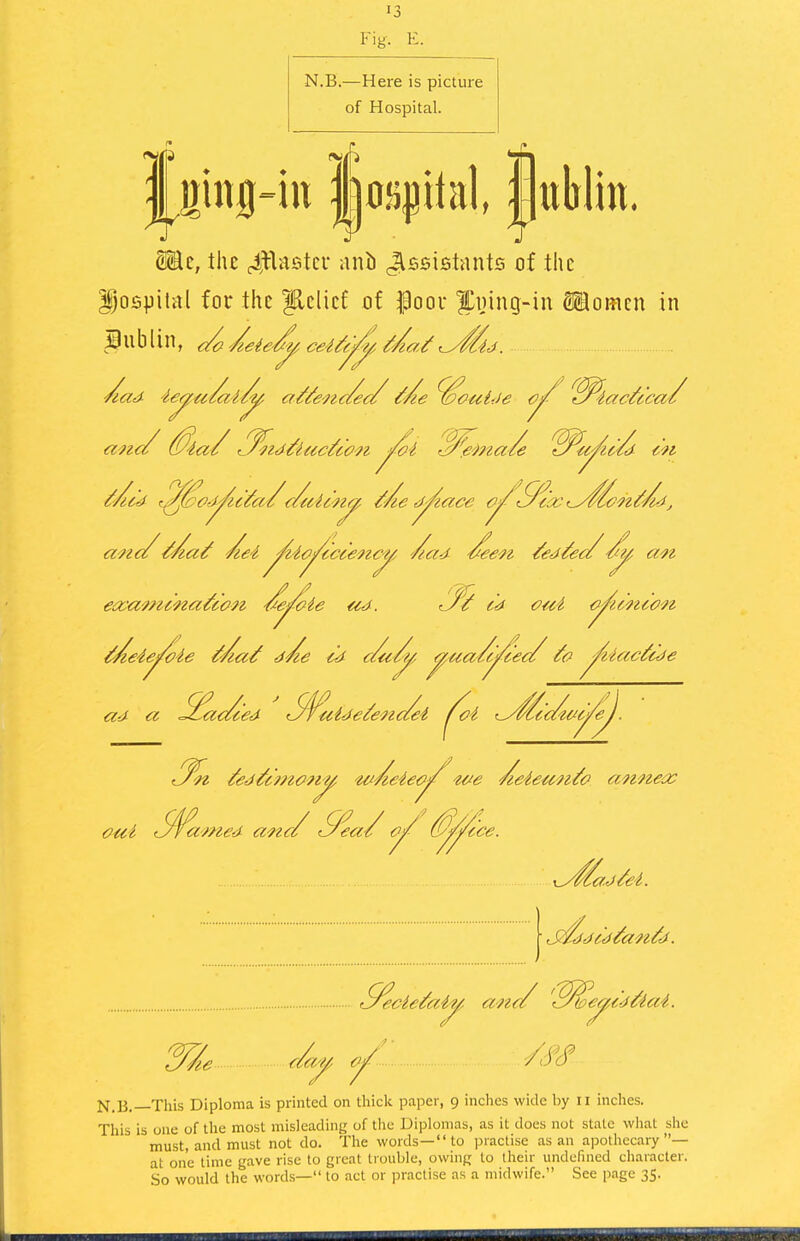 13
Fig. E.
N.B.—Here is picture
of Hospital.
Lying-in Hospital, Dublin.
We, the Master and Assistants of the
Hospital for the Relief of Poor Lying-in Women in
Dublin, do hereby certify that Mrs.
has regularly attended the Course of Practical
and Oral Instruction for Female Pupils in
this Hospital during the space of Six Months,
and that her proficiency has been tested by an
examination before us. It is our opinion
therefore that she is duly qualified to practise
as a Ladies' Nursetender (or Midwife).
In testimony whereof we hereunto annex
our Names and Seal of Office.
Master.
} Assistants.
Secretary and Registrar.
The day of 188
N.B.—This Diploma is printed on thick paper, 9 inches wide by 11 inches.
This is one of the most misleading of the Diplomas, as it does not state what she
must, and must not do. The words—"to practise as an apothecary"—
at one time gave rise to great trouble, owing to their undefined character.
So would the words—" to act or practise as a midwife." See page 35.